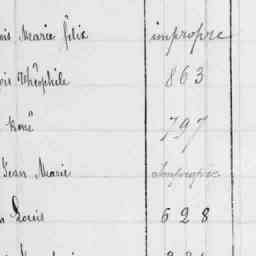 Marie félix impropre
Théophile 863
René 797
Jean Marie Impropre
Louis 628